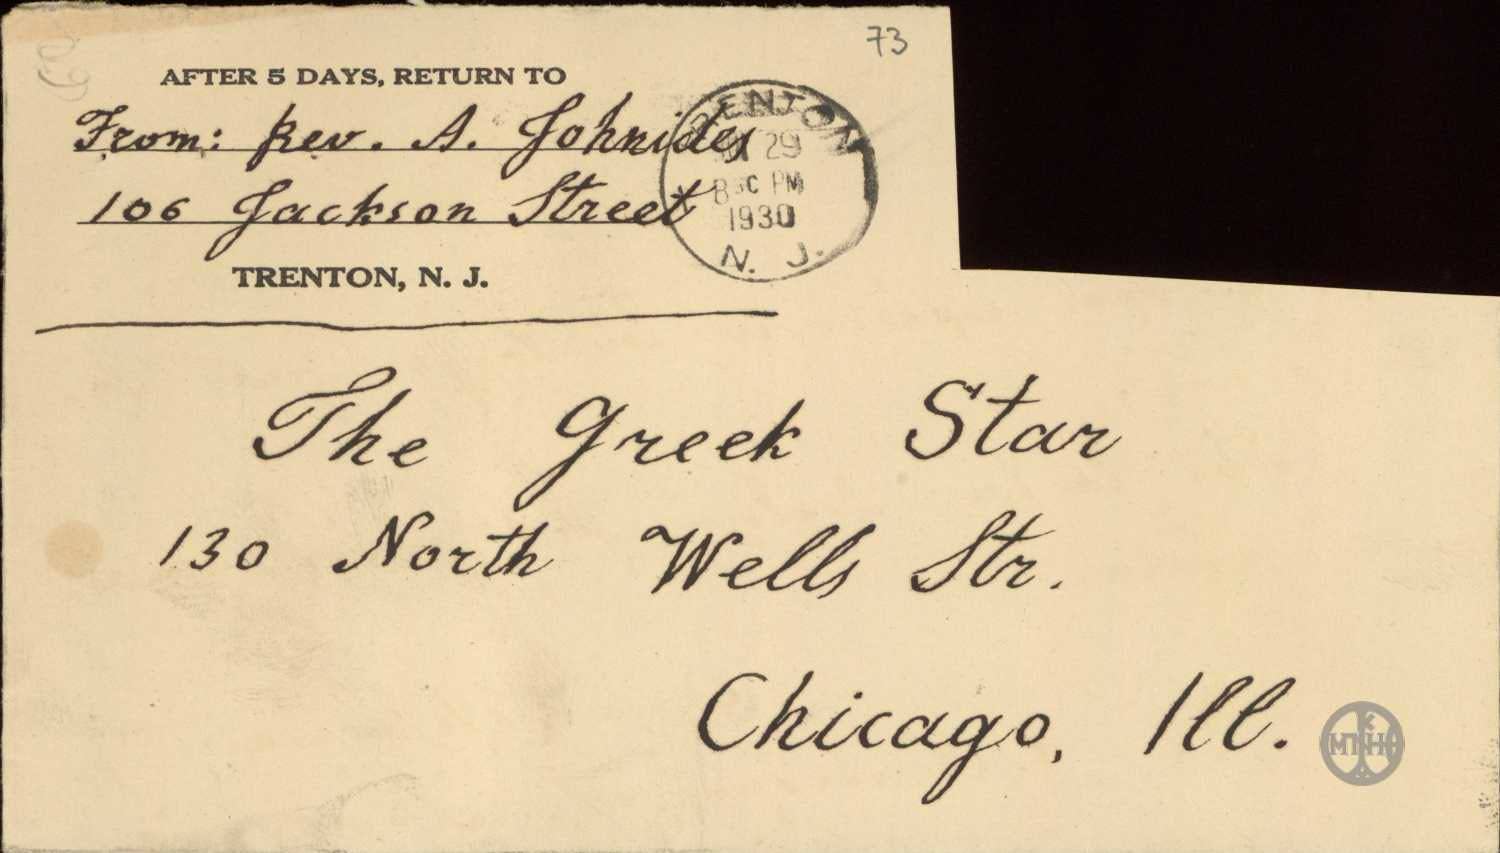 73
AFTER 5 DAYS, RETURN TO
From: Rev. A. Johnides
106 Jackson Street
TRENTON, N. J.
TRENTON
29
8 PM
1930
N. J.
The Greek Star
130 North Wells Str.
Chicago, Ill.